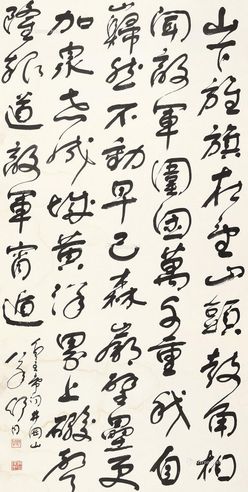 山下旌旗在望山頭鼓角相
聞敵軍圍困萬千重我自
巋然不動早已森嚴壁壘更
加衆志成城黄洋界上礮聲
隆報道敵軍宵遁
毛主席詞井岡山
舒同